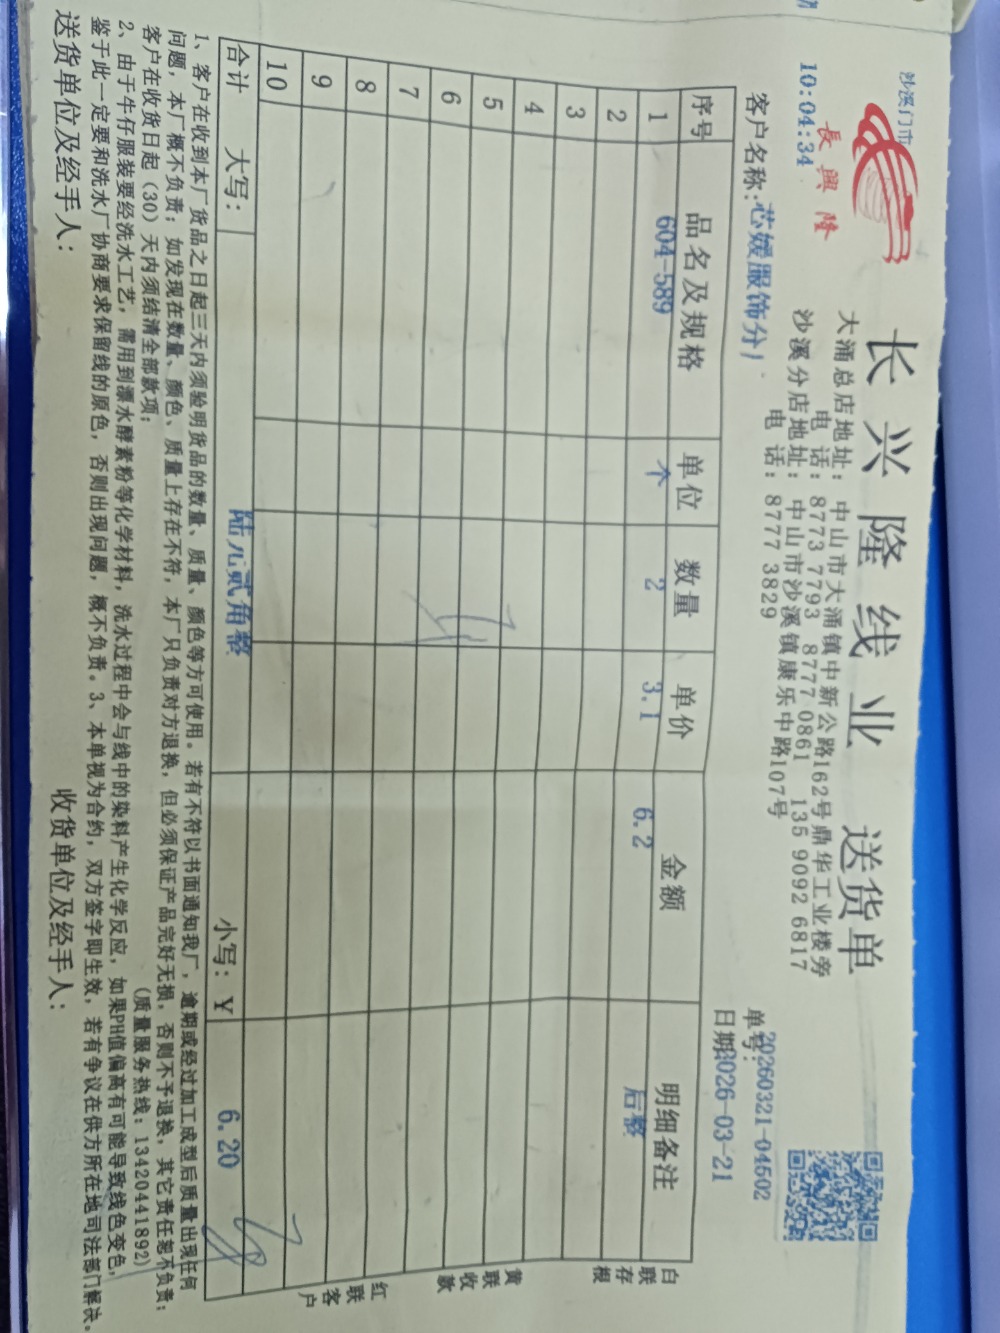 沙溪门市
10:04:34
長興隆
长兴隆线业 送货单
大涌总店地址：中山市大涌镇中新公路162号鼎华工业楼旁
电话：8773 7793 8777 0861 135 9092 6817
沙溪分店地址：中山市沙溪镇康乐中路107号
电话：8777 3829
单号：20260321-04502
客户名称：芯媛服饰分厂
日期2026-03-21
序号 品名及规格 单位 数量 单价 金额 明细备注
1 604-589 个 2 3.1 6.2 后整
2
3
4
5
6
7
8
9
10
合计 大写： 陆元贰角整 小写：¥ 6.20
白联存根
黄联收款
红联客户
1、客户在收到本厂货品之日起三天内须验明货品的数量、质量、颜色等方可使用。若有不符以书面通知我厂，逾期或经过加工成型后质量出现任何
问题，本厂概不负责；如发现在数量、颜色、质量上存在不符，本厂只负责对方退换，但必须保证产品完好无损，否则不予退换，其它责任恕不负责；
客户在收货日起（30）天内须结清全部款项； （质量服务热线：13420441892）
2、由于牛仔服装要经洗水工艺，需用到漂水酵素粉等化学材料，洗水过程中会与线中的染料产生化学反应，如果PH值偏高有可能导致线色变色，
鉴于此一定要和洗水厂协商要求保留线的原色，否则出现问题，概不负责。3、本单视为合约，双方签字即生效，若有争议在供方所在地司法部门解决。
送货单位及经手人： 收货单位及经手人：